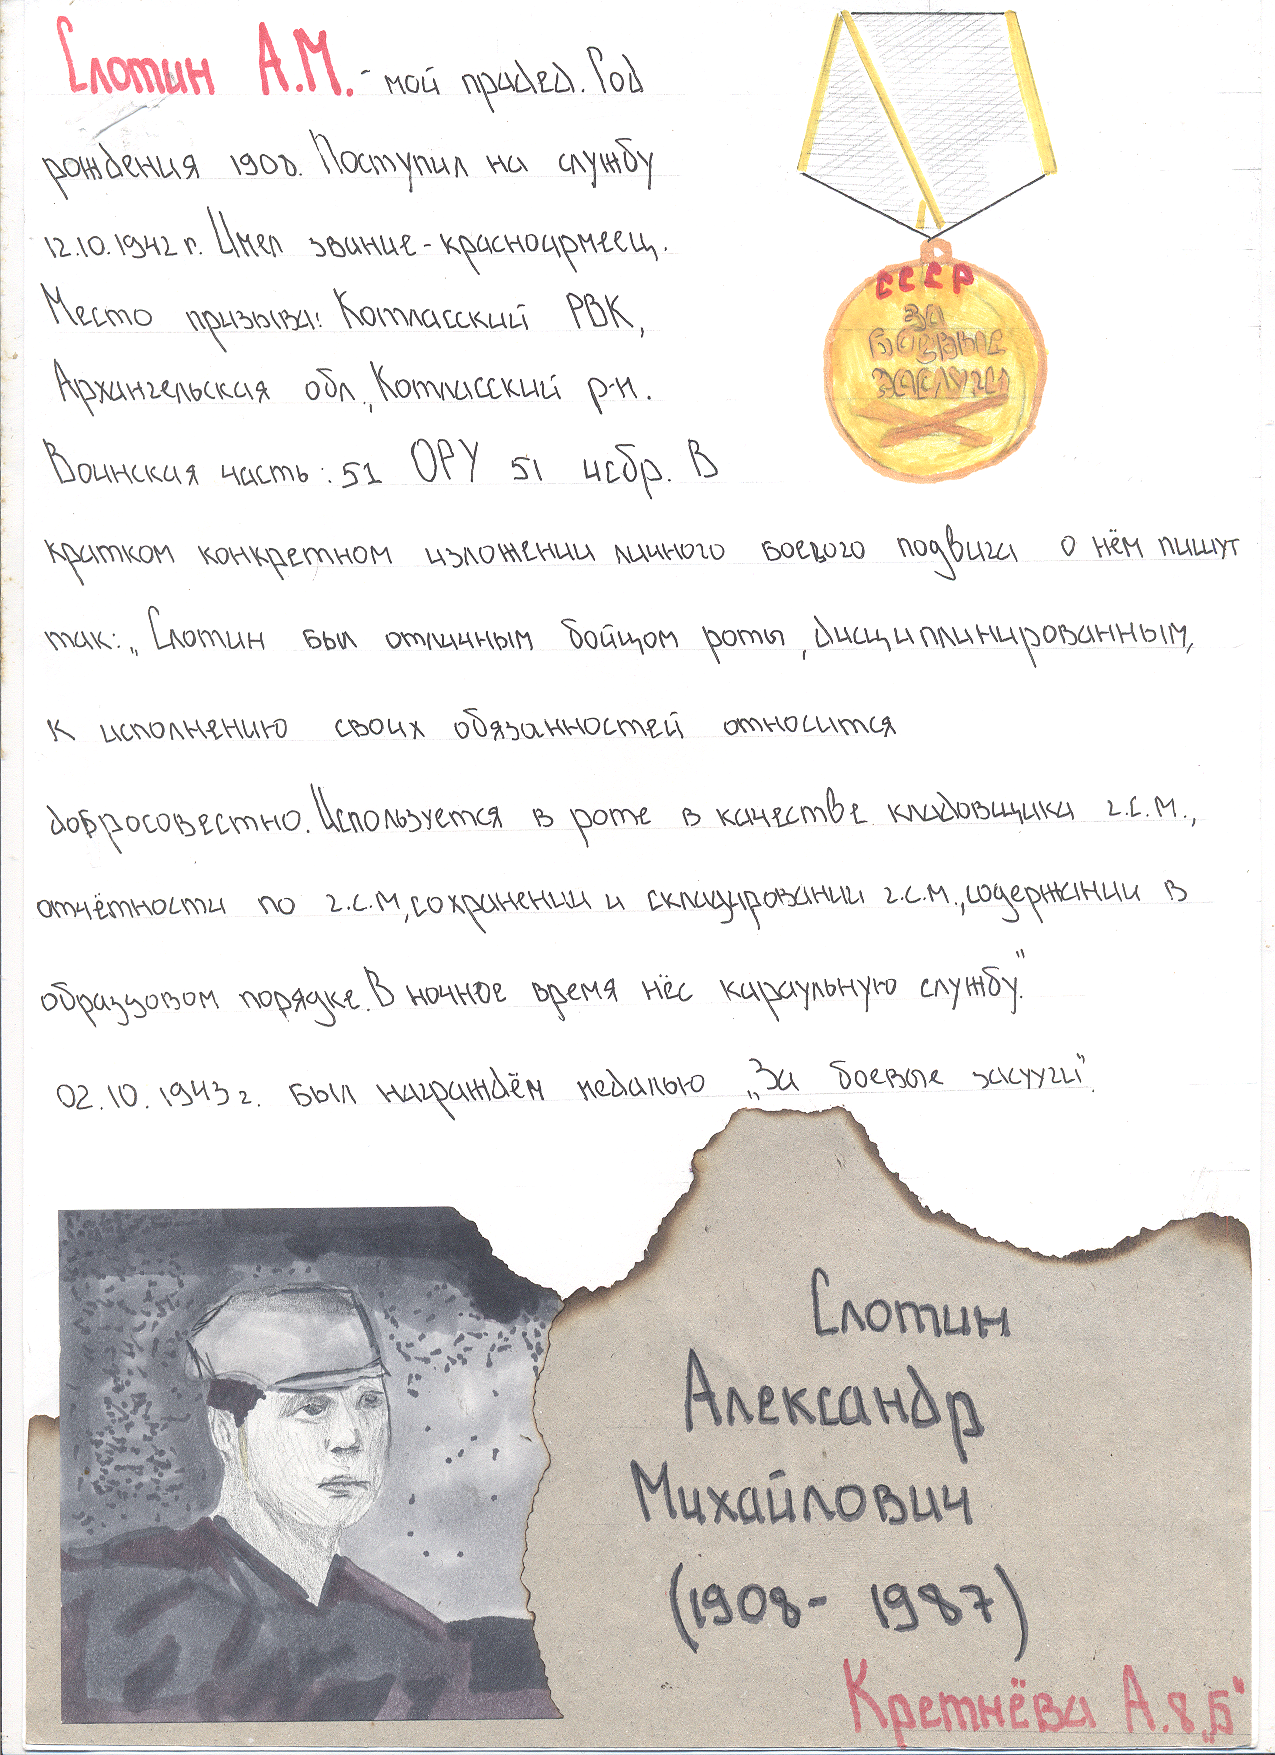 Слотин А.М. - мой прадед. Год
рождения 1908. Поступил на службу
12.10.1942 г. Имел звание - красноармеец.
Место призыва: Котласский РВК,
Архангельская обл., Котласский р-н.
Воинская часть: 51 ОРУ 51 исбр. В
кратком конкретном изложении личного боевого подвига о нём пишут
так: „Слотин был отличным бойцом роты, дисциплинированным,
к исполнению своих обязанностей относится
добросовестно. Используется в роте в качестве кладовщика г.с.м.,
отчётности по г.с.м, сохранении и складировании г.с.м., содержании в
образцовом порядке. В ночное время нёс караульную службу."
02.10.1943 г. был награждём медалью „За боевые засуги".
СССР
ЗА
БОЕВЫЕ
ЗАСЛУГИ
Слотин
Александр
Михайлович
(1908- 1987)
Кретнёва А. 8„Б"